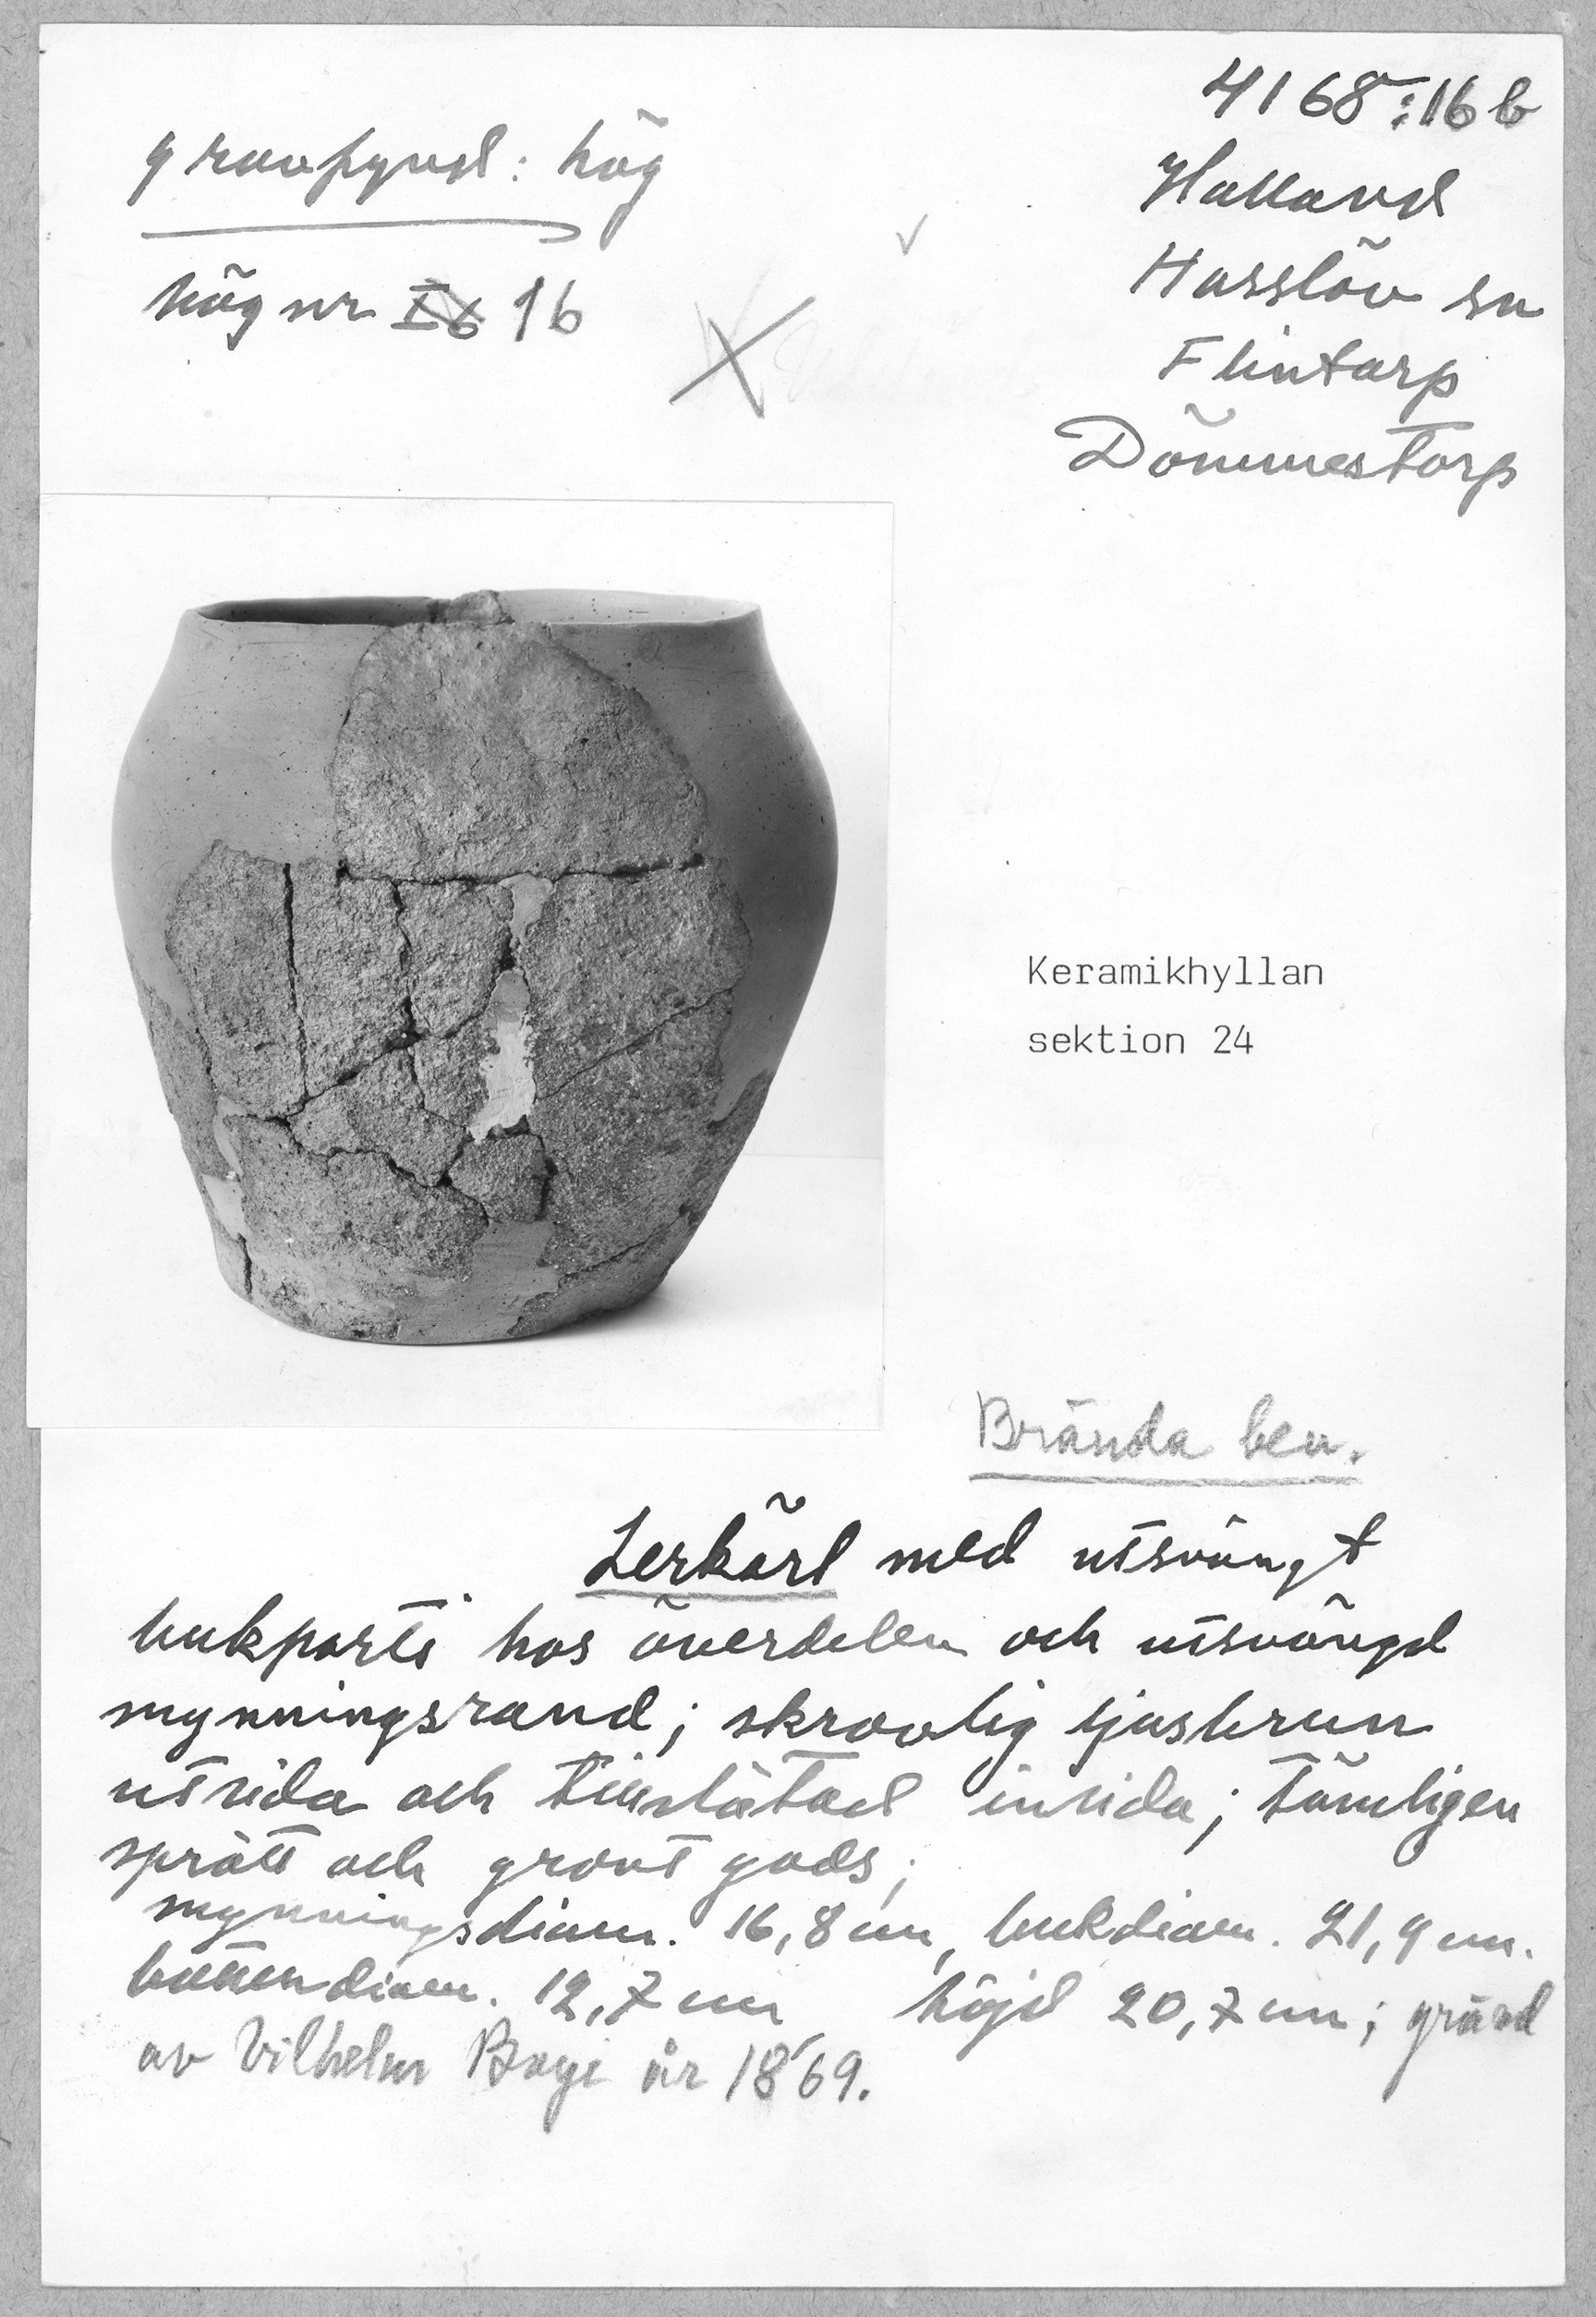 4168:16b
Halland
Hasslöv sn
Flintarp
Dömmestorp
gravfynd: hög
hög nr 16
Keramikhyllan
sektion 24
Brända ben.
Lerkärl med utsvängt
bukparti hos överdelen och utsvängd
mynningsrand; skrovlig ljusbrun
utsida och tillslätad insida; tämligen
sprött och grovt gods;
mynningsdiam. 16,8 cm, bukdiam. 21,9 cm.
bottendiam. 12,7 cm höjd 20,7 cm; grävd
av Vilhelm Boye år 1869.